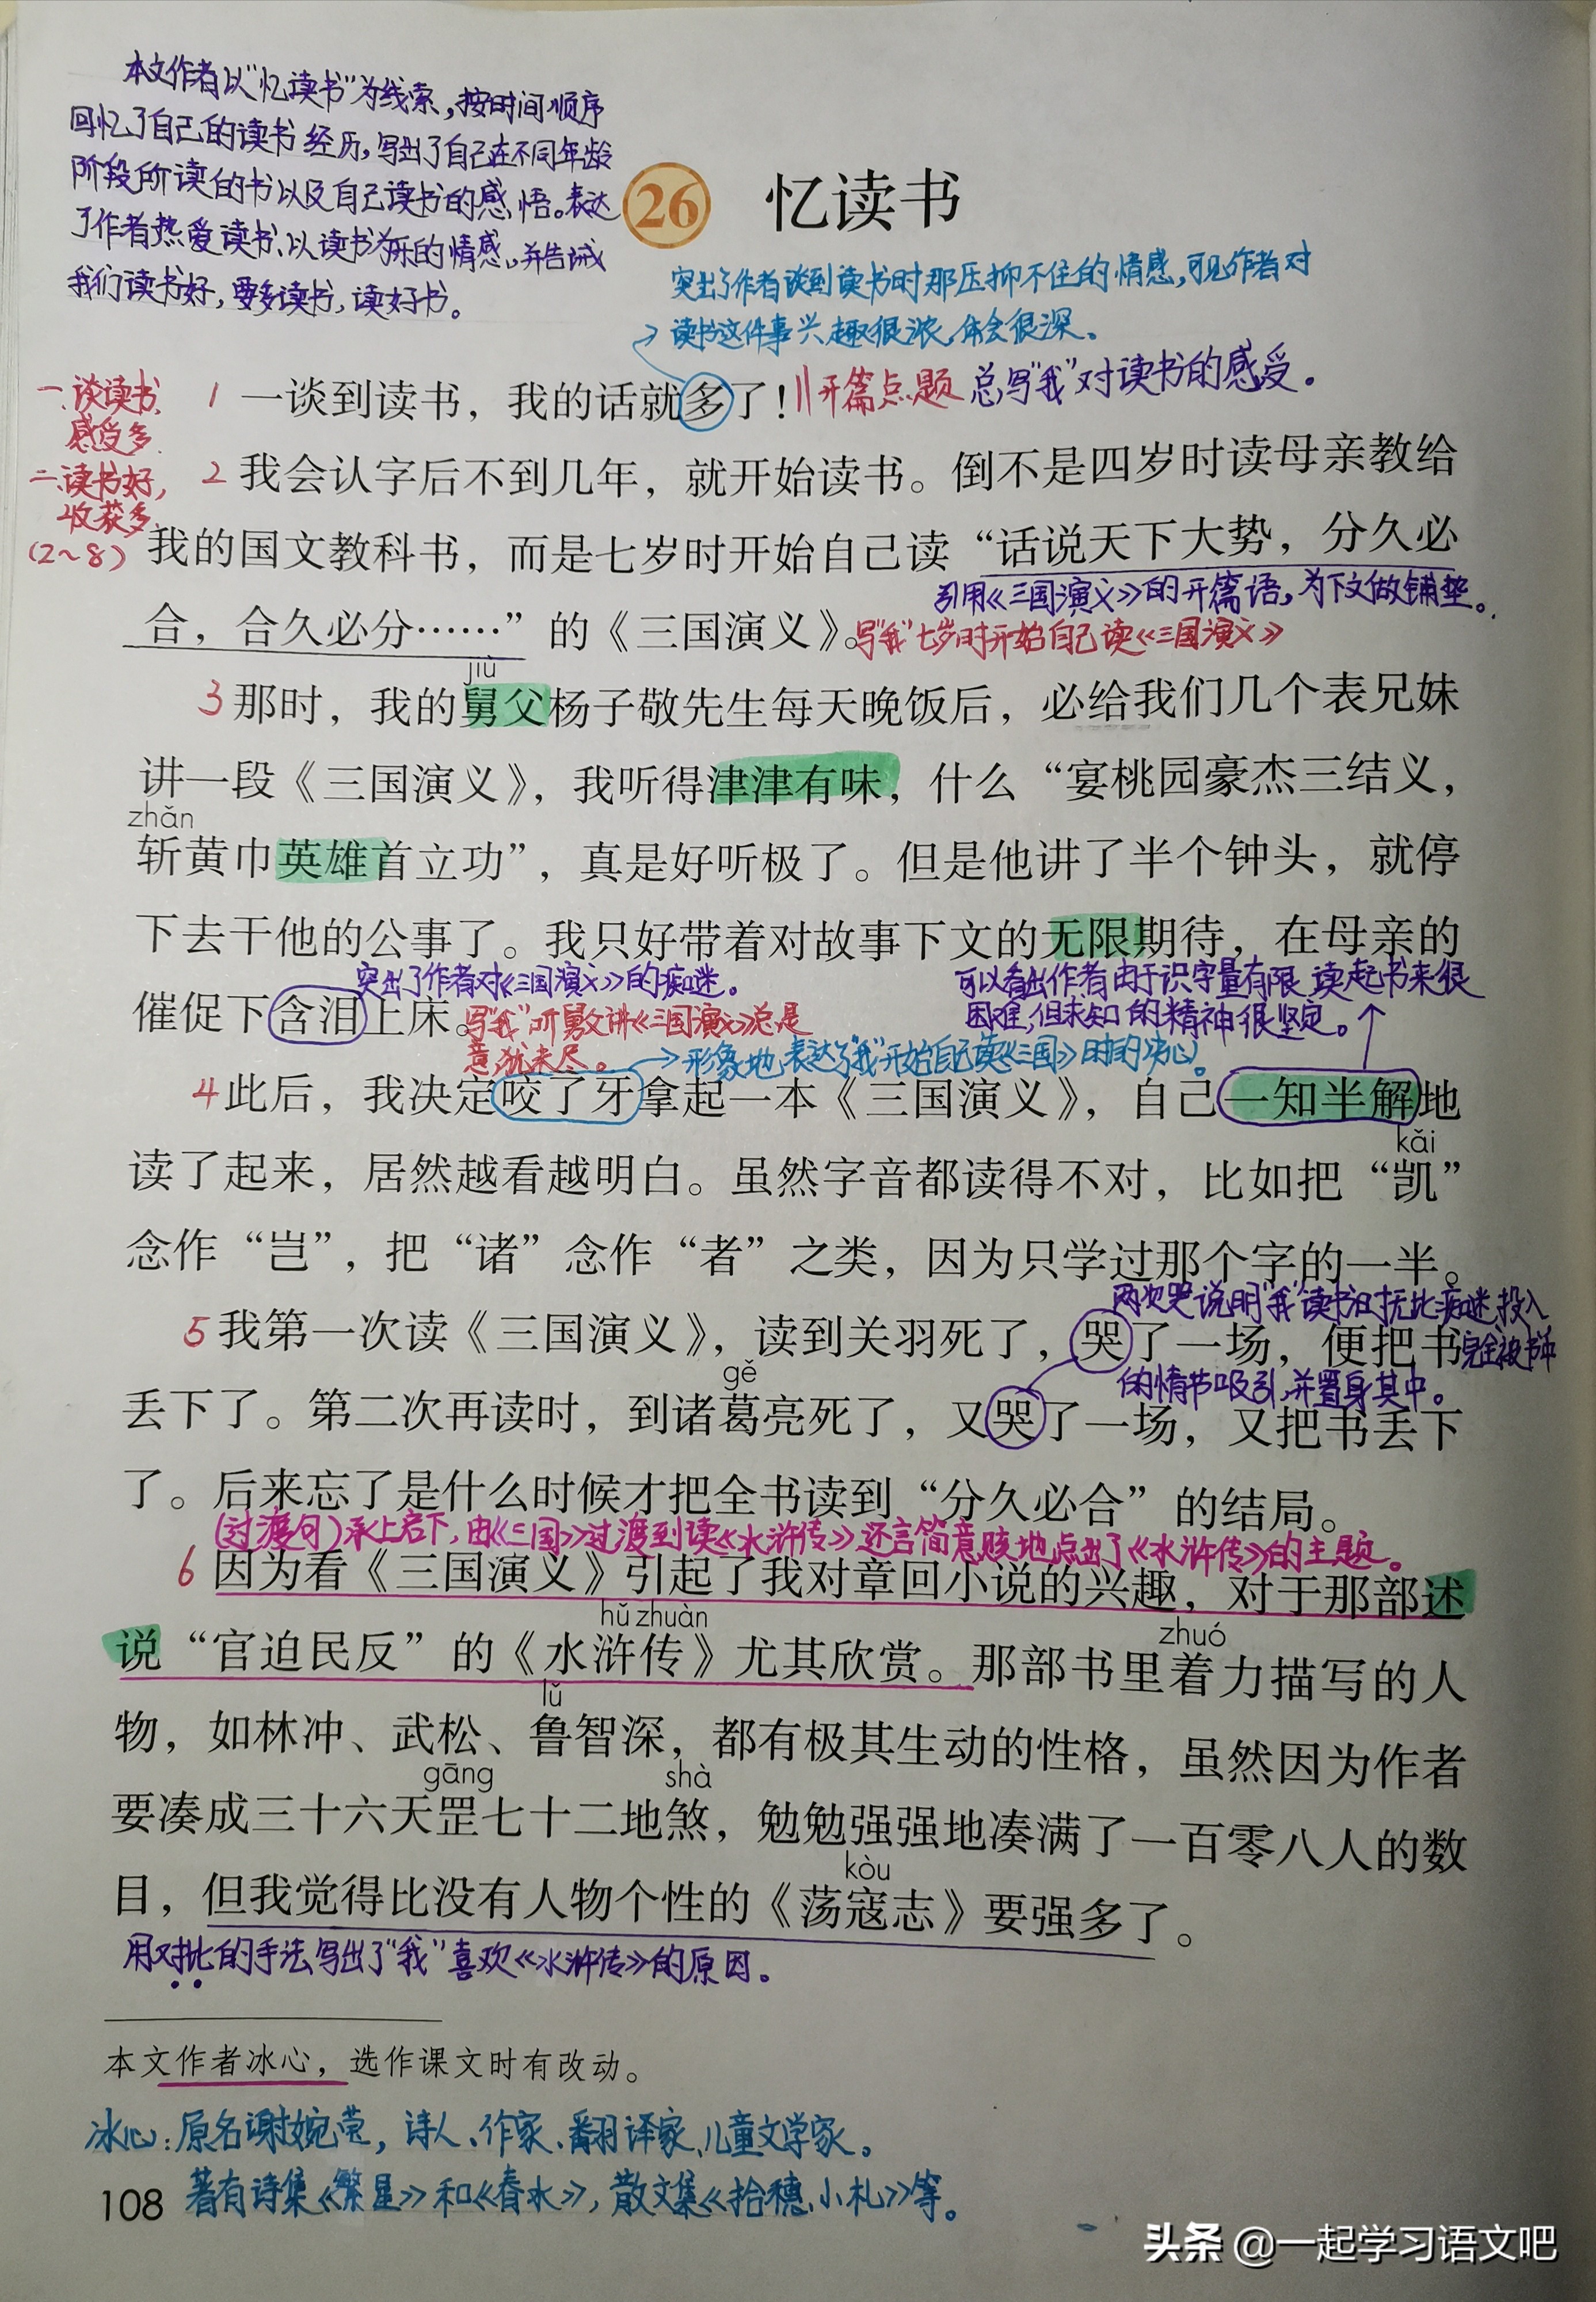 本文作者以“忆读书”为线索，按时间顺序
回忆了自己的读书经历，写出了自己在不同年龄
阶段所读的书以及自己读书的感悟。表达
了作者热爱读书、以读书为乐的情感，并告诫
我们读书好，要多读书，读好书。
26 忆读书
突出了作者谈到读书时那压抑不住的情感，可见作者对
读书这件事兴趣很浓，体会很深。
一、谈读书，
感受多。
1 一谈到读书，我的话就多了！ 开篇点题 总写“我”对读书的感受。
二、读书好，
收获多。
(2～8)
2 我会认字后不到几年，就开始读书。倒不是四岁时读母亲教给
我的国文教科书，而是七岁时开始自己读“话说天下大势，分久必
引用《三国演义》的开篇语，为下文做铺垫。
合，合久必分……”的《三国演义》。写“我”七岁时开始自己读《三国演义》
jiù
3 那时，我的舅父杨子敬先生每天晚饭后，必给我们几个表兄妹
讲一段《三国演义》，我听得津津有味，什么“宴桃园豪杰三结义，
zhǎn
斩黄巾英雄首立功”，真是好听极了。但是他讲了半个钟头，就停
下去干他的公事了。我只好带着对故事下文的无限期待，在母亲的
突出了作者对《三国演义》的痴迷。
催促下含泪上床。写“我”听舅父讲《三国演义》总是
意犹未尽。
可以看出作者由于识字量有限，读起书来很
困难，但求知的精神很坚定。
形象地表达了“我”开始自己读《三国》时的决心。
4 此后，我决定咬了牙拿起一本《三国演义》，自己一知半解地
kǎi
读了起来，居然越看越明白。虽然字音都读得不对，比如把“凯”
念作“岂”，把“诸”念作“者”之类，因为只学过那个字的一半。
两次哭说明“我”读书时无比痴迷，投入
5 我第一次读《三国演义》，读到关羽死了，哭了一场，便把书
完全被书中
的情节吸引，并置身其中。
gě
丢下了。第二次再读时，到诸葛亮死了，又哭了一场，又把书丢下
了。后来忘了是什么时候才把全书读到“分久必合”的结局。
(过渡句)承上启下，由《三国》过渡到读《水浒传》还言简意赅地点出了《水浒传》的主题。
6 因为看《三国演义》引起了我对章回小说的兴趣，对于那部述
hǔ zhuàn zhuó
说“官迫民反”的《水浒传》尤其欣赏。那部书里着力描写的人
lǔ
物，如林冲、武松、鲁智深，都有极其生动的性格，虽然因为作者
gāng shà
要凑成三十六天罡七十二地煞，勉勉强强地凑满了一百零八人的数
kòu
目，但我觉得比没有人物个性的《荡寇志》要强多了。
用对比的手法写出了“我”喜欢《水浒传》的原因。
本文作者冰心，选作课文时有改动。
冰心：原名谢婉莹，诗人、作家、翻译家、儿童文学家。
著有诗集《繁星》和《春水》，散文集《拾穗小札》等。
108
头条 @一起学习语文吧